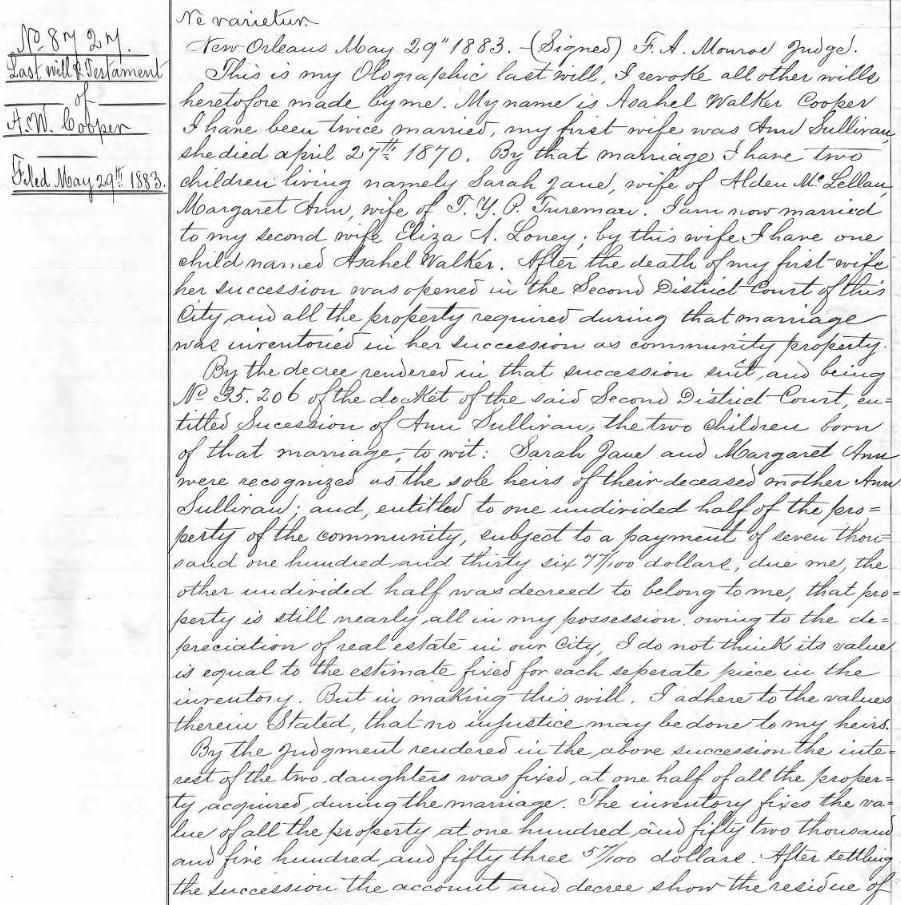 No. 8727.
Last will & Testament
of
A. W. Cooper
Filed May 29th 1883.
Ne varietur
New Orleans May 29" 1883. - (Signed) F. A. Monroe Judge.
This is my Olographic last will. I revoke all other wills
heretofore made by me. My name is Asahel Walker Cooper
I have been twice married, my first wife was Ann Sullivan,
she died april 27th 1870. By that marriage I have two
children living namely Sarah Jane, wife of Alden McLellan
Margaret Ann, wife of T. Y. P. Tureman. I am now married
to my second wife Eliza A. Loney; by this wife I have one
child named Asahel Walker. After the death of my first wife
her succession was opened in the Second District Court of this
City and all the property required during that marriage
was inventoried in her succession as community property.
By the decree rendered in that succession suit, and being
No 35.206 of the docket of the said Second District Court, en=
titled Sucession of Ann Sullivan, the two children born
of that marriage, to wit: Sarah Jane and Margaret Ann
were recognized as the sole heirs of their deceased mother Ann
Sullivan; and, entitled to one undivided half of the pro=
perty of the community, subject to a payment of seven thou=
sand one hundred and thirty six 77/100 dollars, due me, the
other undivided half was decreed to belong to me, that pro=
perty is still nearly all in my possession. owing to the de=
preciation of real estate in our City, I do not think its value
is equal to the estimate fixed for each seperate piece in the
inventory. But in making this will. I adhere to the values
therein Stated, that no injustice may be done to my heirs.
By the Judgment rendered in the above succession the inte=
rest of the two daughters was fixed, at one half of all the proper=
ty, acquired, during the marriage. The inventory fixes the va=
lue of all the property at one hundred and fifty two thousand
and five hundred and fifty three 57/100 dollars. After settling
the succession the account and decree show the residue of